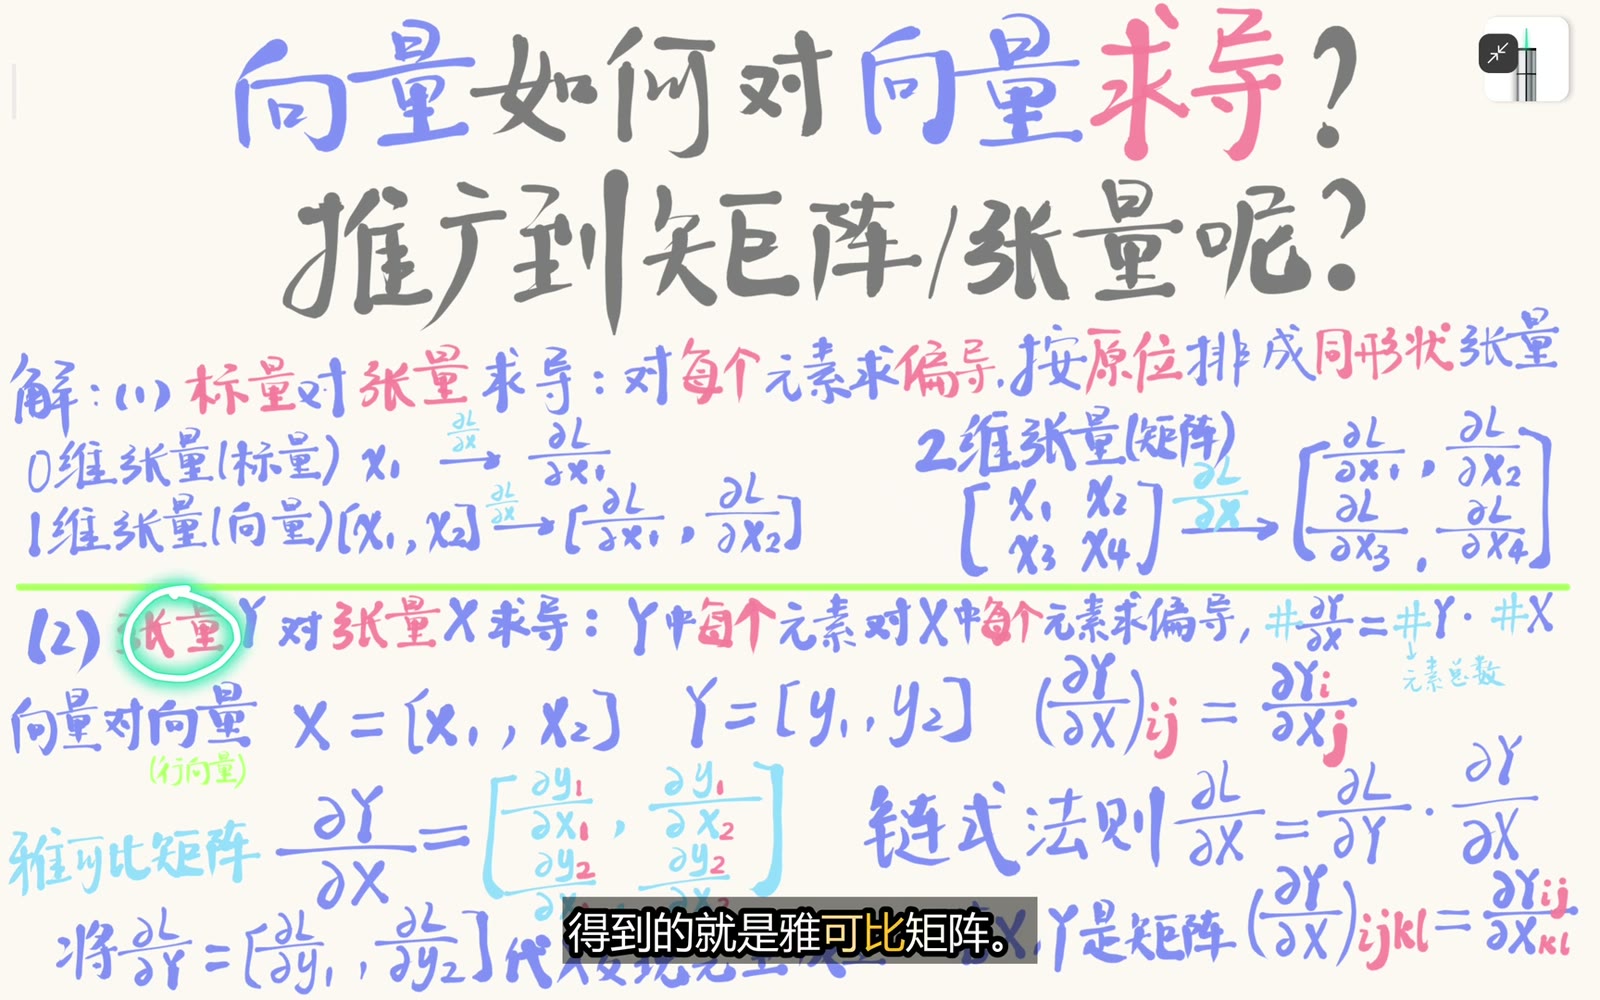 向量如何对向量求导?
推广到矩阵/张量呢?
解:(1) 标量对张量求导:对每个元素求偏导,按原位排成同形状张量
0维张量(标量) x₁ ∂L/∂X → ∂L/∂x₁
1维张量(向量)[x₁, x₂] ∂L/∂X → [∂L/∂x₁, ∂L/∂x₂]
2维张量(矩阵)
[x₁ x₂
x₃ x₄] ∂L/∂X → [∂L/∂x₁, ∂L/∂x₂
∂L/∂x₃, ∂L/∂x₄]
(2) 张量Y对张量X求导:Y中每个元素对X中每个元素求偏导, #∂Y/∂X = #Y · #X
↓
元素总数
向量对向量 X = [x₁, x₂] Y = [y₁, y₂] (∂Y/∂X)ij = ∂Yi/∂Xj
(行向量)
雅可比矩阵 ∂Y/∂X = [∂y₁/∂x₁, ∂y₁/∂x₂
∂y₂ ∂y₂]
链式法则 ∂L/∂X = ∂L/∂Y · ∂Y/∂X
将 ∂L/∂Y = [∂L/∂y₁, ∂L/∂y₂] 代
X,Y是矩阵 (∂Y/∂X)ijkl = ∂Yij/∂Xkl
得到的就是雅可比矩阵。